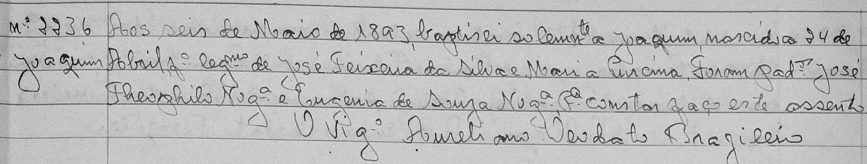 Nº 2236 Aos seis de Maio de 1893, baptisei solemnte a Joaquim, nascido a 24 de
Joaquim Abril fº legmo de José Teixeira da Silva e Maria Tircina, Foram padros José
Theophilo Nogª e Eugenia de Souza Nogª. Pª constar faço este assento
O Vigº Aureliano Deodato Brazileiro